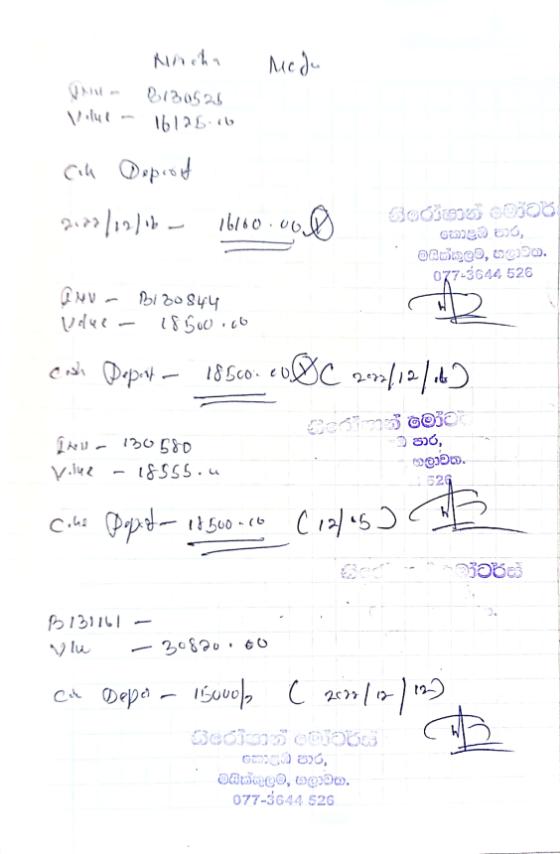 INV - B130525
Value - 16125.00
Cash Deposit
2022/12/16 - 16160.00
සිරෝෂාන් මෝටර්ස්
කොළඹ පාර,
මයික්කුලම, හලාවත.
077-3644 526
INV - B130844
Value - 18500.00
Cash Deposit - 18500.00 (2022/12/16)
සිරෝෂාන් මෝටර්
පාර,
හලාවත.
526
INV - 130580
Value - 18555.00
Cash Deposit - 18500.00 (12/15)
මෝටර්ස්
B131161 -
Value - 30820.00
Cash Deposit - 15000/= (2022/12/12)
සිරෝෂාන් මෝටර්ස්
කොළඹ පාර,
මයික්කුලම, හලාවත.
077-3644 526